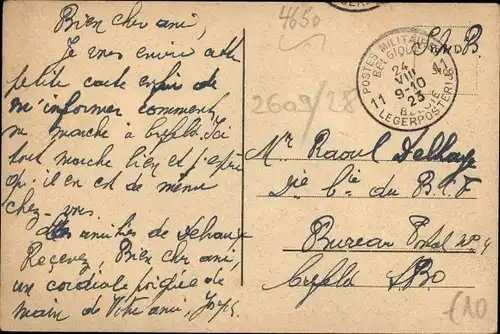 Bien cher ami,
Je vous envoie cette
petite carte enfin de
m'informer comment
ça marche à Crefeld. Ici
tout marche bien et j'espère
qu'il en est de même
chez-vous
Des amitiés de Delhaye
Recevez, Bien cher ami,
un cordiale poignée de
main de votre ami,
4650
2609/28
S.M.B.
POSTES MILITAIRES
BELGIQUE
24
VIII
11 9-10 11
23
BELGIË
LEGERPOSTERIJ
Mr Raoul Delhaye
Cie du B.T.F
Bureau Postal No 4
Crefeld
€10